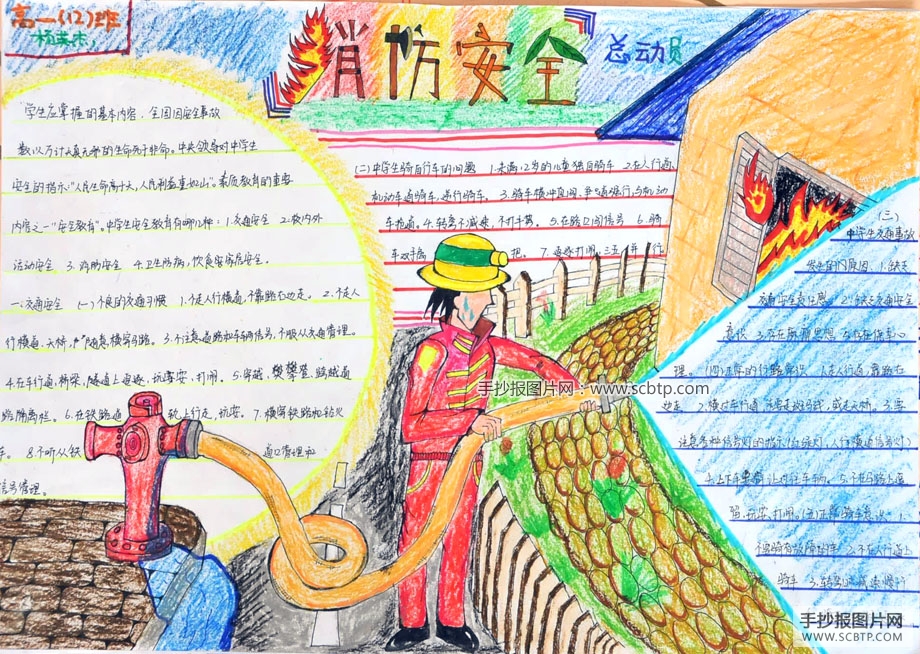 高一(12)班
消防安全
总动员
学生应掌握的基本内容,全国因安全事故
数以万计天真无邪的生命死于非命。中央领导对中学生
安全的指示:"人民生命高于天,人民利益重如山"。素质教育的重要
内容之一"安全教育"。中学生安全教育有哪几种:1.交通安全 2.校内外
运动安全 3.消防安全 4.卫生防病,饮食
一.交通安全 (一)不良的交通习惯 1.不走人行横道,不靠路右边走。2.不走人
行横道、天桥, 横穿马路。3.不注意道路和车辆信号,不服从交通管理。
4.在车行道,桥梁,隧道上追逐,玩耍,打闹。5.穿越,攀登,跨越道
路隔离栏。6.在铁路道 轨上行走,玩耍。7.横穿铁路和钻火
车。8.不听从铁 道口管理和
信号管理。
(二)中学生骑自行车的问题 1.未满12岁的儿童独自骑车 2.在人行道,
机动车道骑车,逆行骑车。3.骑车横冲直闯,争道强行,与机动
车抢道。4.转弯不减速,不打手势。5.在路口闯信号 6.骑
车双手离 把。7.追逐打闹,三五并行
(三)
中学生交通事故
发生的原因 1.缺乏
交通安全责任感。2.缺乏交通安全
意识 3.存在麻痹思想
理。(四)正常的行路常识 1.走人行道,靠路右
边走 2.横过车行道 要走斑马线,或走天桥。3.要
注意各种信号灯的指示(红绿灯,人行横道信号灯)
4.上下车 让过往车辆。5.不在公路上追
1.
不骑有故障的车 2.不在人行道上
骑车 3.转弯时减速慢行
手抄报图片网:www.scbtp.com
手抄报图片网
WWW.SCBTP.COM